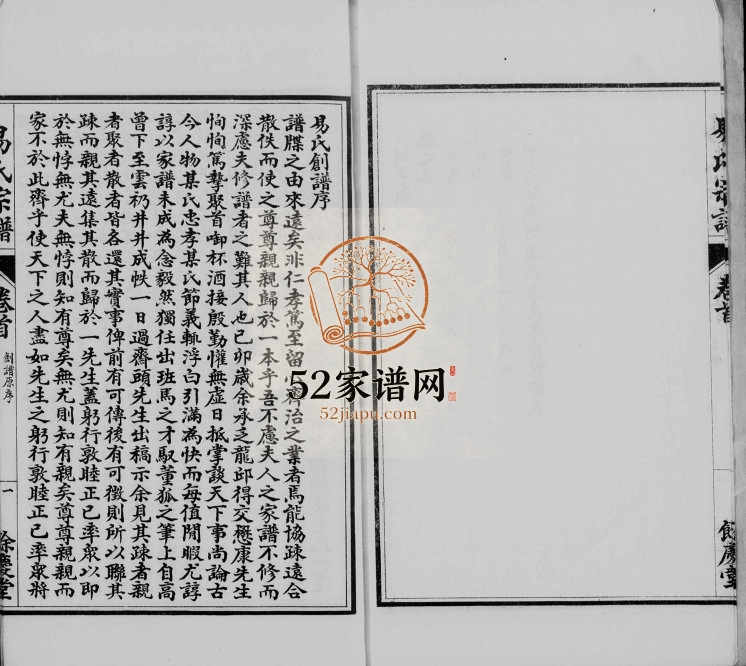 易氏宗譜
卷首
餘慶堂
易氏創譜序
譜牒之由來遠矣非仁孝篤至留心齊治之業者焉能協疎遠合
散佚而使之尊尊親親歸於一本乎吾不慮夫人之家譜不修而
深慮夫修譜者之難其人也己卯歲余承乏龍邱得交懋康先生
恂恂篤摯聚首啣杯酒接殷勤懽無虛日抵掌談天下事尚論古
今人物某氏忠孝某氏節義輒浮白引滿為快而每值閒暇尤諄
諄以家譜未成為念毅然獨任出班馬之才馭董狐之筆上自高
曾下至雲礽井井成帙一日過齋頭先生出稿示余見其疎者親
者聚者散者皆各還其實事俾前有可傳後有可徵則所以聯其
疎而親其遠集其散而歸於一先生蓋躬行敦睦正己率衆以即
於無悖無尤夫無悖則知有尊矣無尤則知有親矣尊尊親親而
家不於此齊乎使天下之人盡如先生之躬行敦睦正己率衆將
易氏宗譜
卷首
創譜原序
一
餘慶堂
52家谱网
52jiapu.com